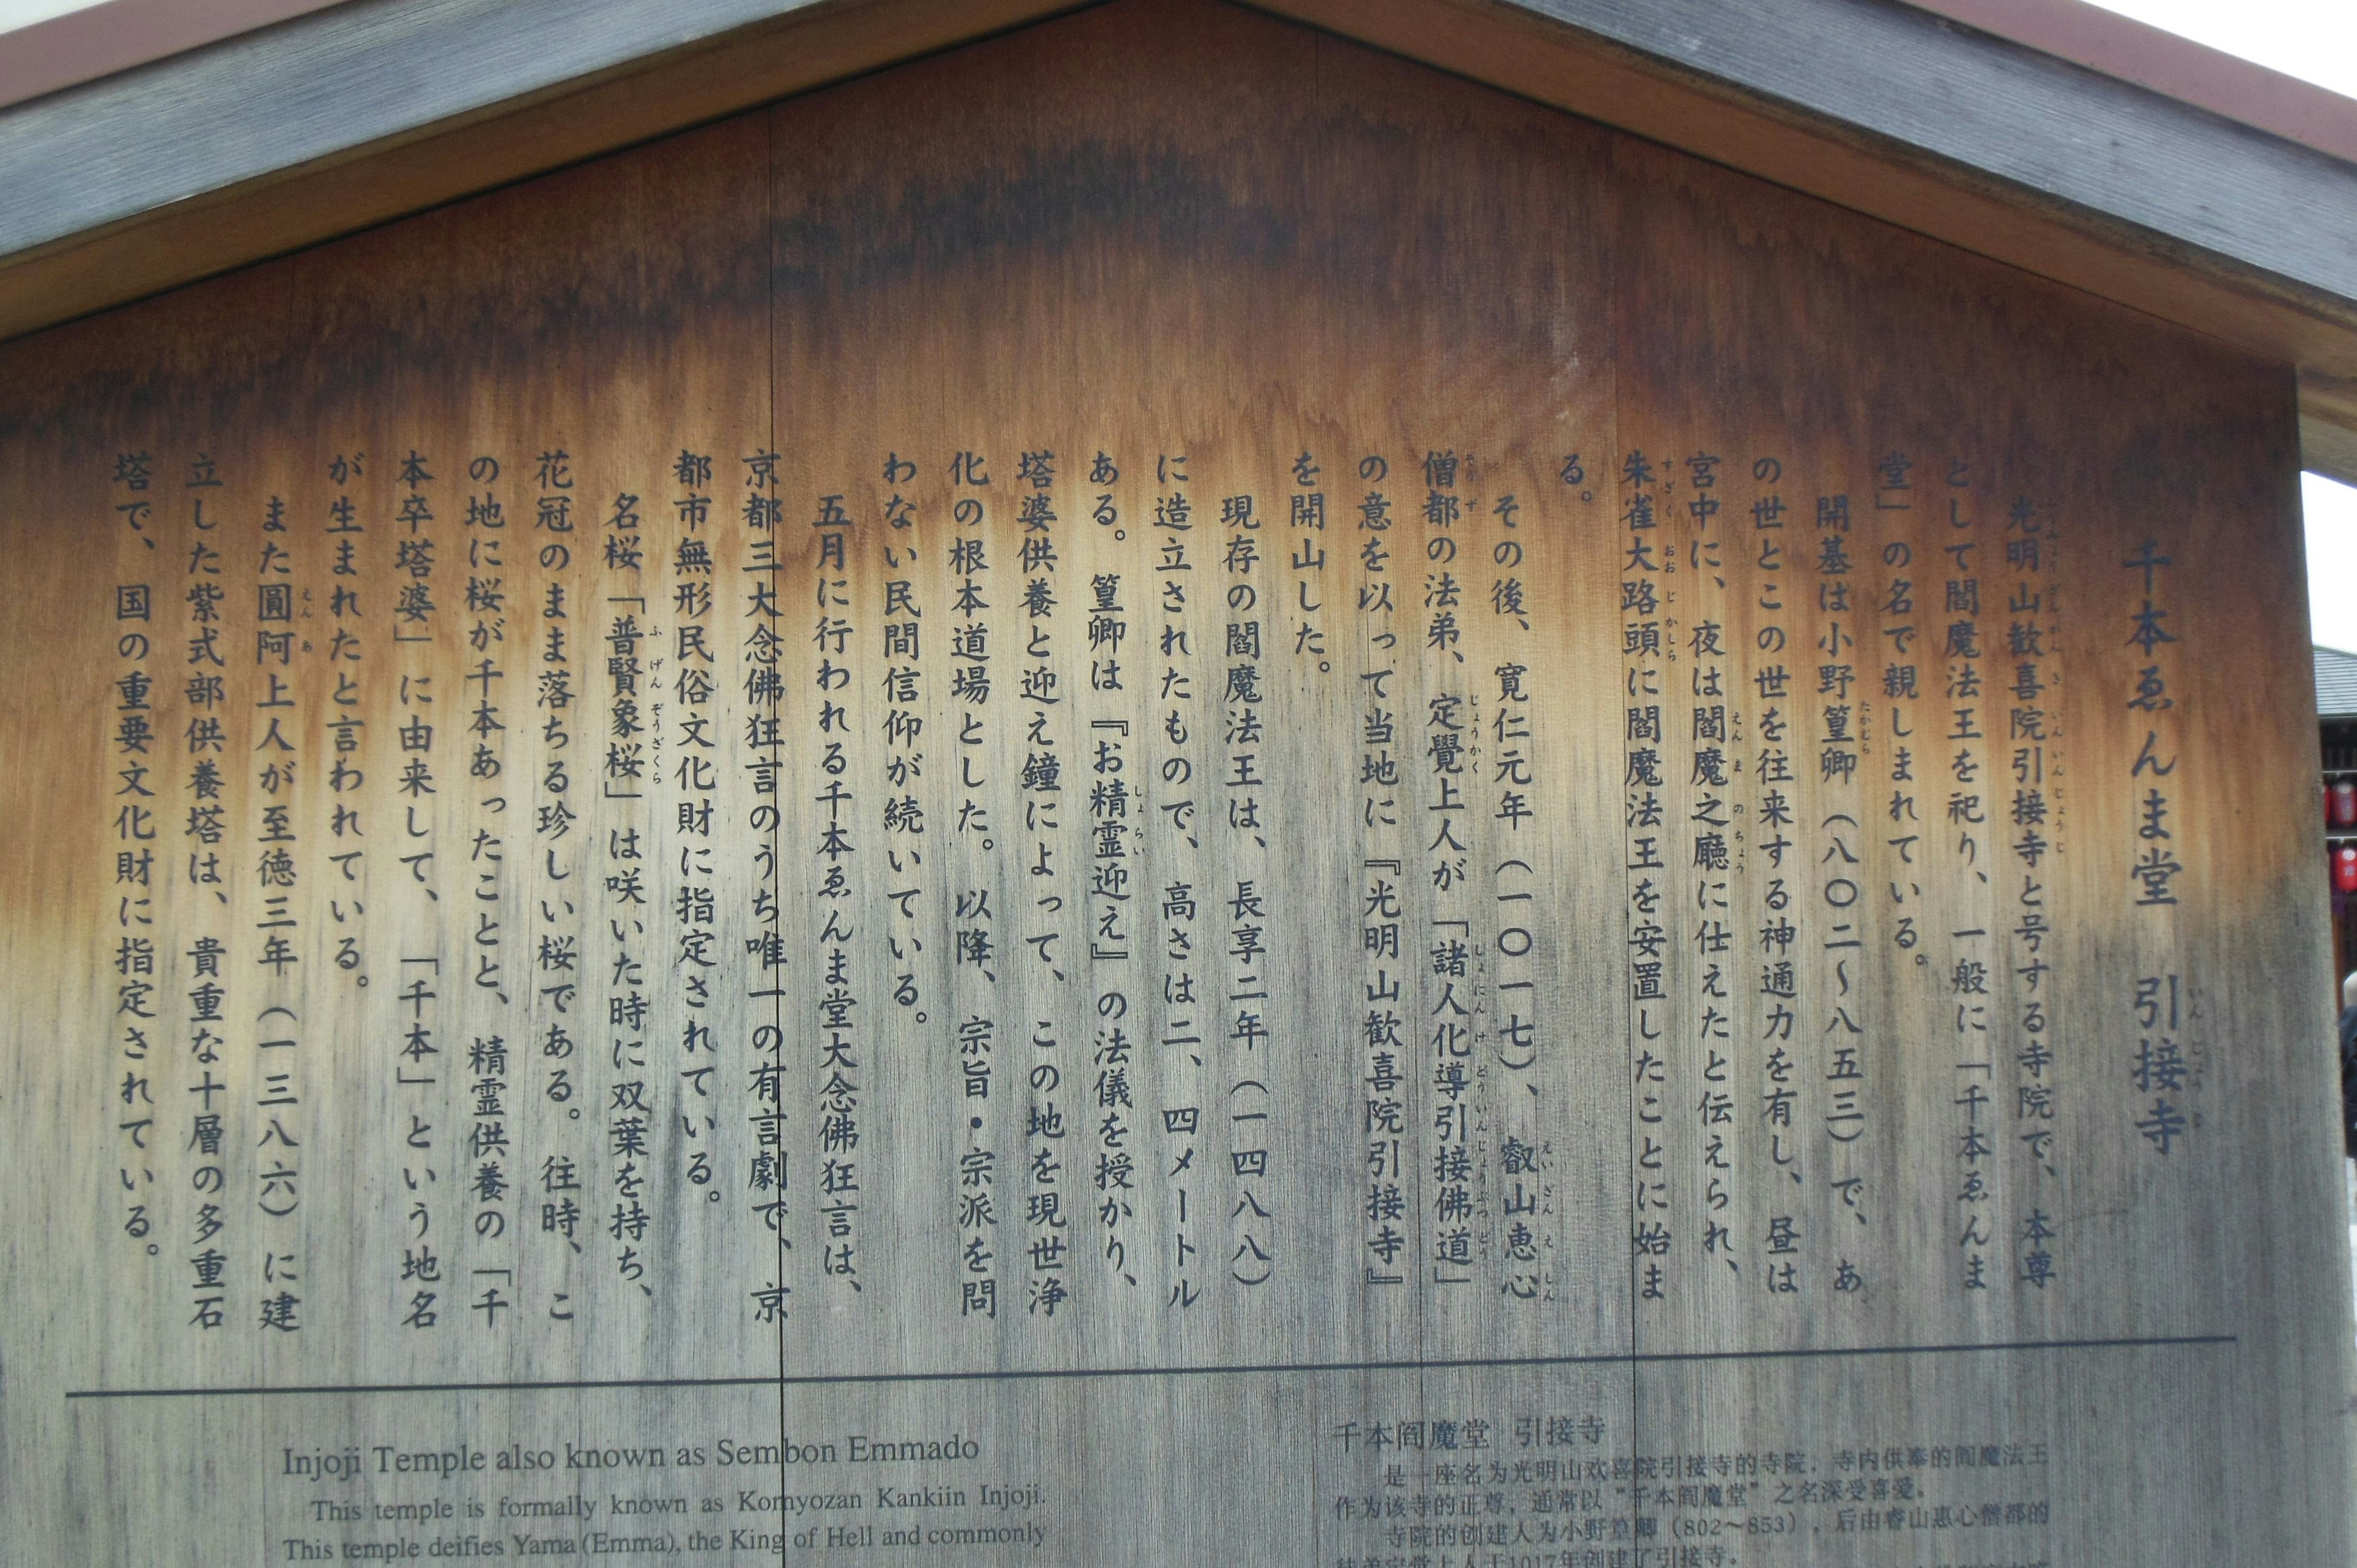 千本ゑんま堂 引接寺
光明山歓喜院引接寺と号する寺院で、本尊
として閻魔法王を祀り、一般に「千本ゑんま
堂」の名で親しまれている。
開基は小野篁卿（八〇二～八五三）で、あ
の世とこの世を往来する神通力を有し、昼は
宮中に、夜は閻魔之廳に仕えたと伝えられ、
朱雀大路頭に閻魔法王を安置したことに始ま
る。
その後、寛仁元年（一〇一七）、叡山恵心
僧都の法弟、定覺上人が「諸人化導引接佛道」
の意を以って当地に『光明山歓喜院引接寺』
を開山した。
現存の閻魔法王は、長享二年（一四八八）
に造立されたもので、高さは二、四メートル
ある。篁卿は『お精霊迎え』の法儀を授かり、
塔婆供養と迎え鐘によって、この地を現世浄
化の根本道場とした。以降、宗旨・宗派を問
わない民間信仰が続いている。
五月に行われる千本ゑんま堂大念佛狂言は、
京都三大念佛狂言のうち唯一の有言劇で、京
都市無形民俗文化財に指定されている。
名桜「普賢象桜」は咲いた時に双葉を持ち、
花冠のまま落ちる珍しい桜である。往時、こ
の地に桜が千本あったことと、精霊供養の「千
本卒塔婆」に由来して、「千本」という地名
が生まれたと言われている。
また圓阿上人が至徳三年（一三八六）に建
立した紫式部供養塔は、貴重な十層の多重石
塔で、国の重要文化財に指定されている。
Injoji Temple also known as Sembon Emmado
This temple is formally known as Komyozan Kankiin Injoji.
This temple deifies Yama (Emma), the King of Hell and commonly
千本阎魔堂 引接寺
是一座名为光明山欢喜院引接寺的寺院，寺内供奉的阎魔法王
作为该寺的正尊，通常以“千本阎魔堂”之名深受喜爱。
寺院的创建人为小野篁卿（802～853），后由睿山惠心僧都的
法弟定觉上人于1017年创建了引接寺。